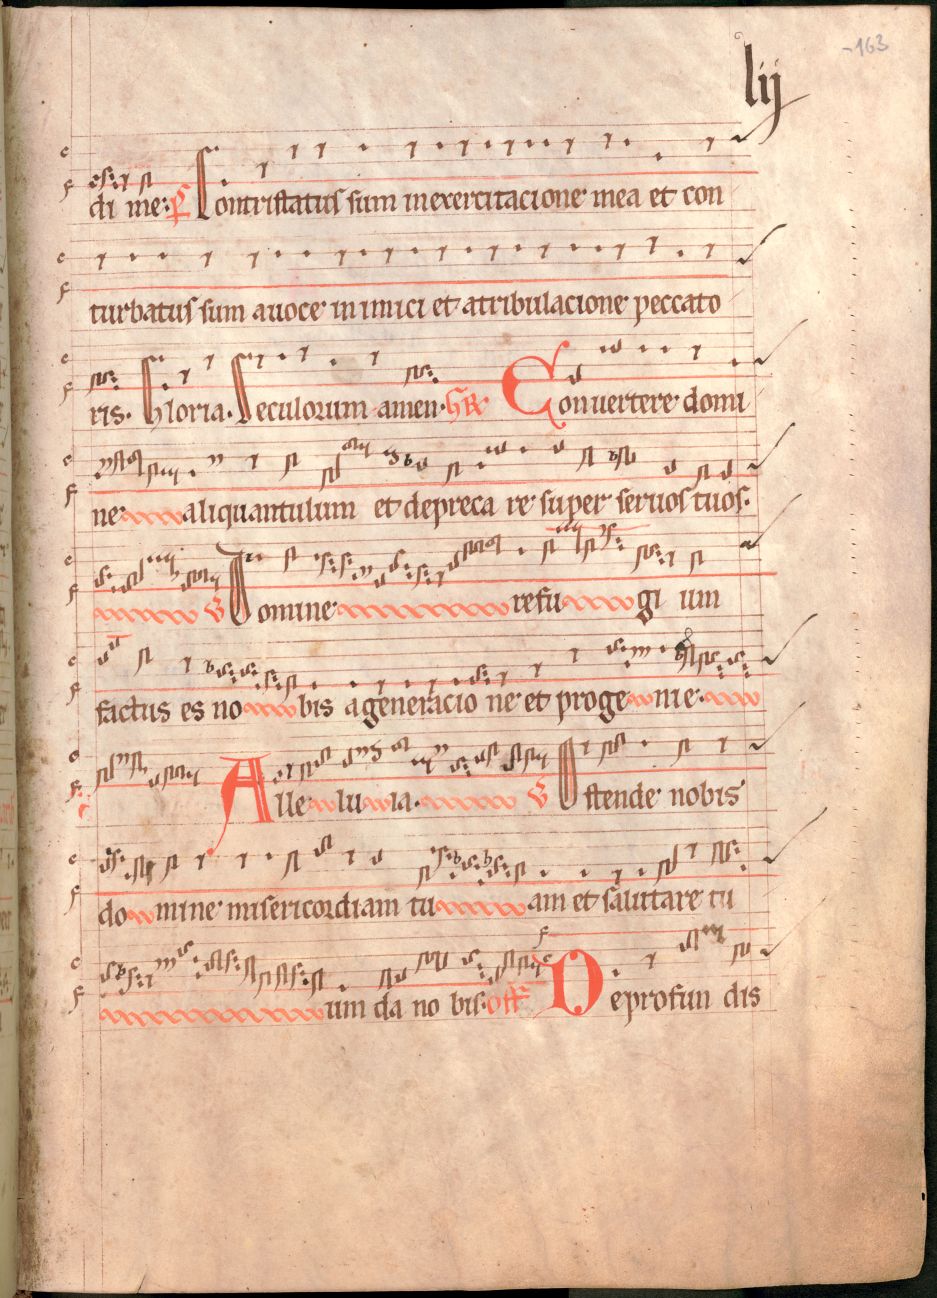 163
lij
di me. Contristatus sum in exercitacione mea et con
turbatus sum a voce inimici et a tribulacione peccato
ris. Gloria. Seculorum amen. Gr̄ Convertere domi
ne aliquantulum et depreca re super servos tuos.
V Domine refu gi um
factus es no bis a generacio ne et proge nie.
Alle lu ia. V Ostende nobis
do mine misericordiam tu am et salutare tu
um da no bis. off De profun dis